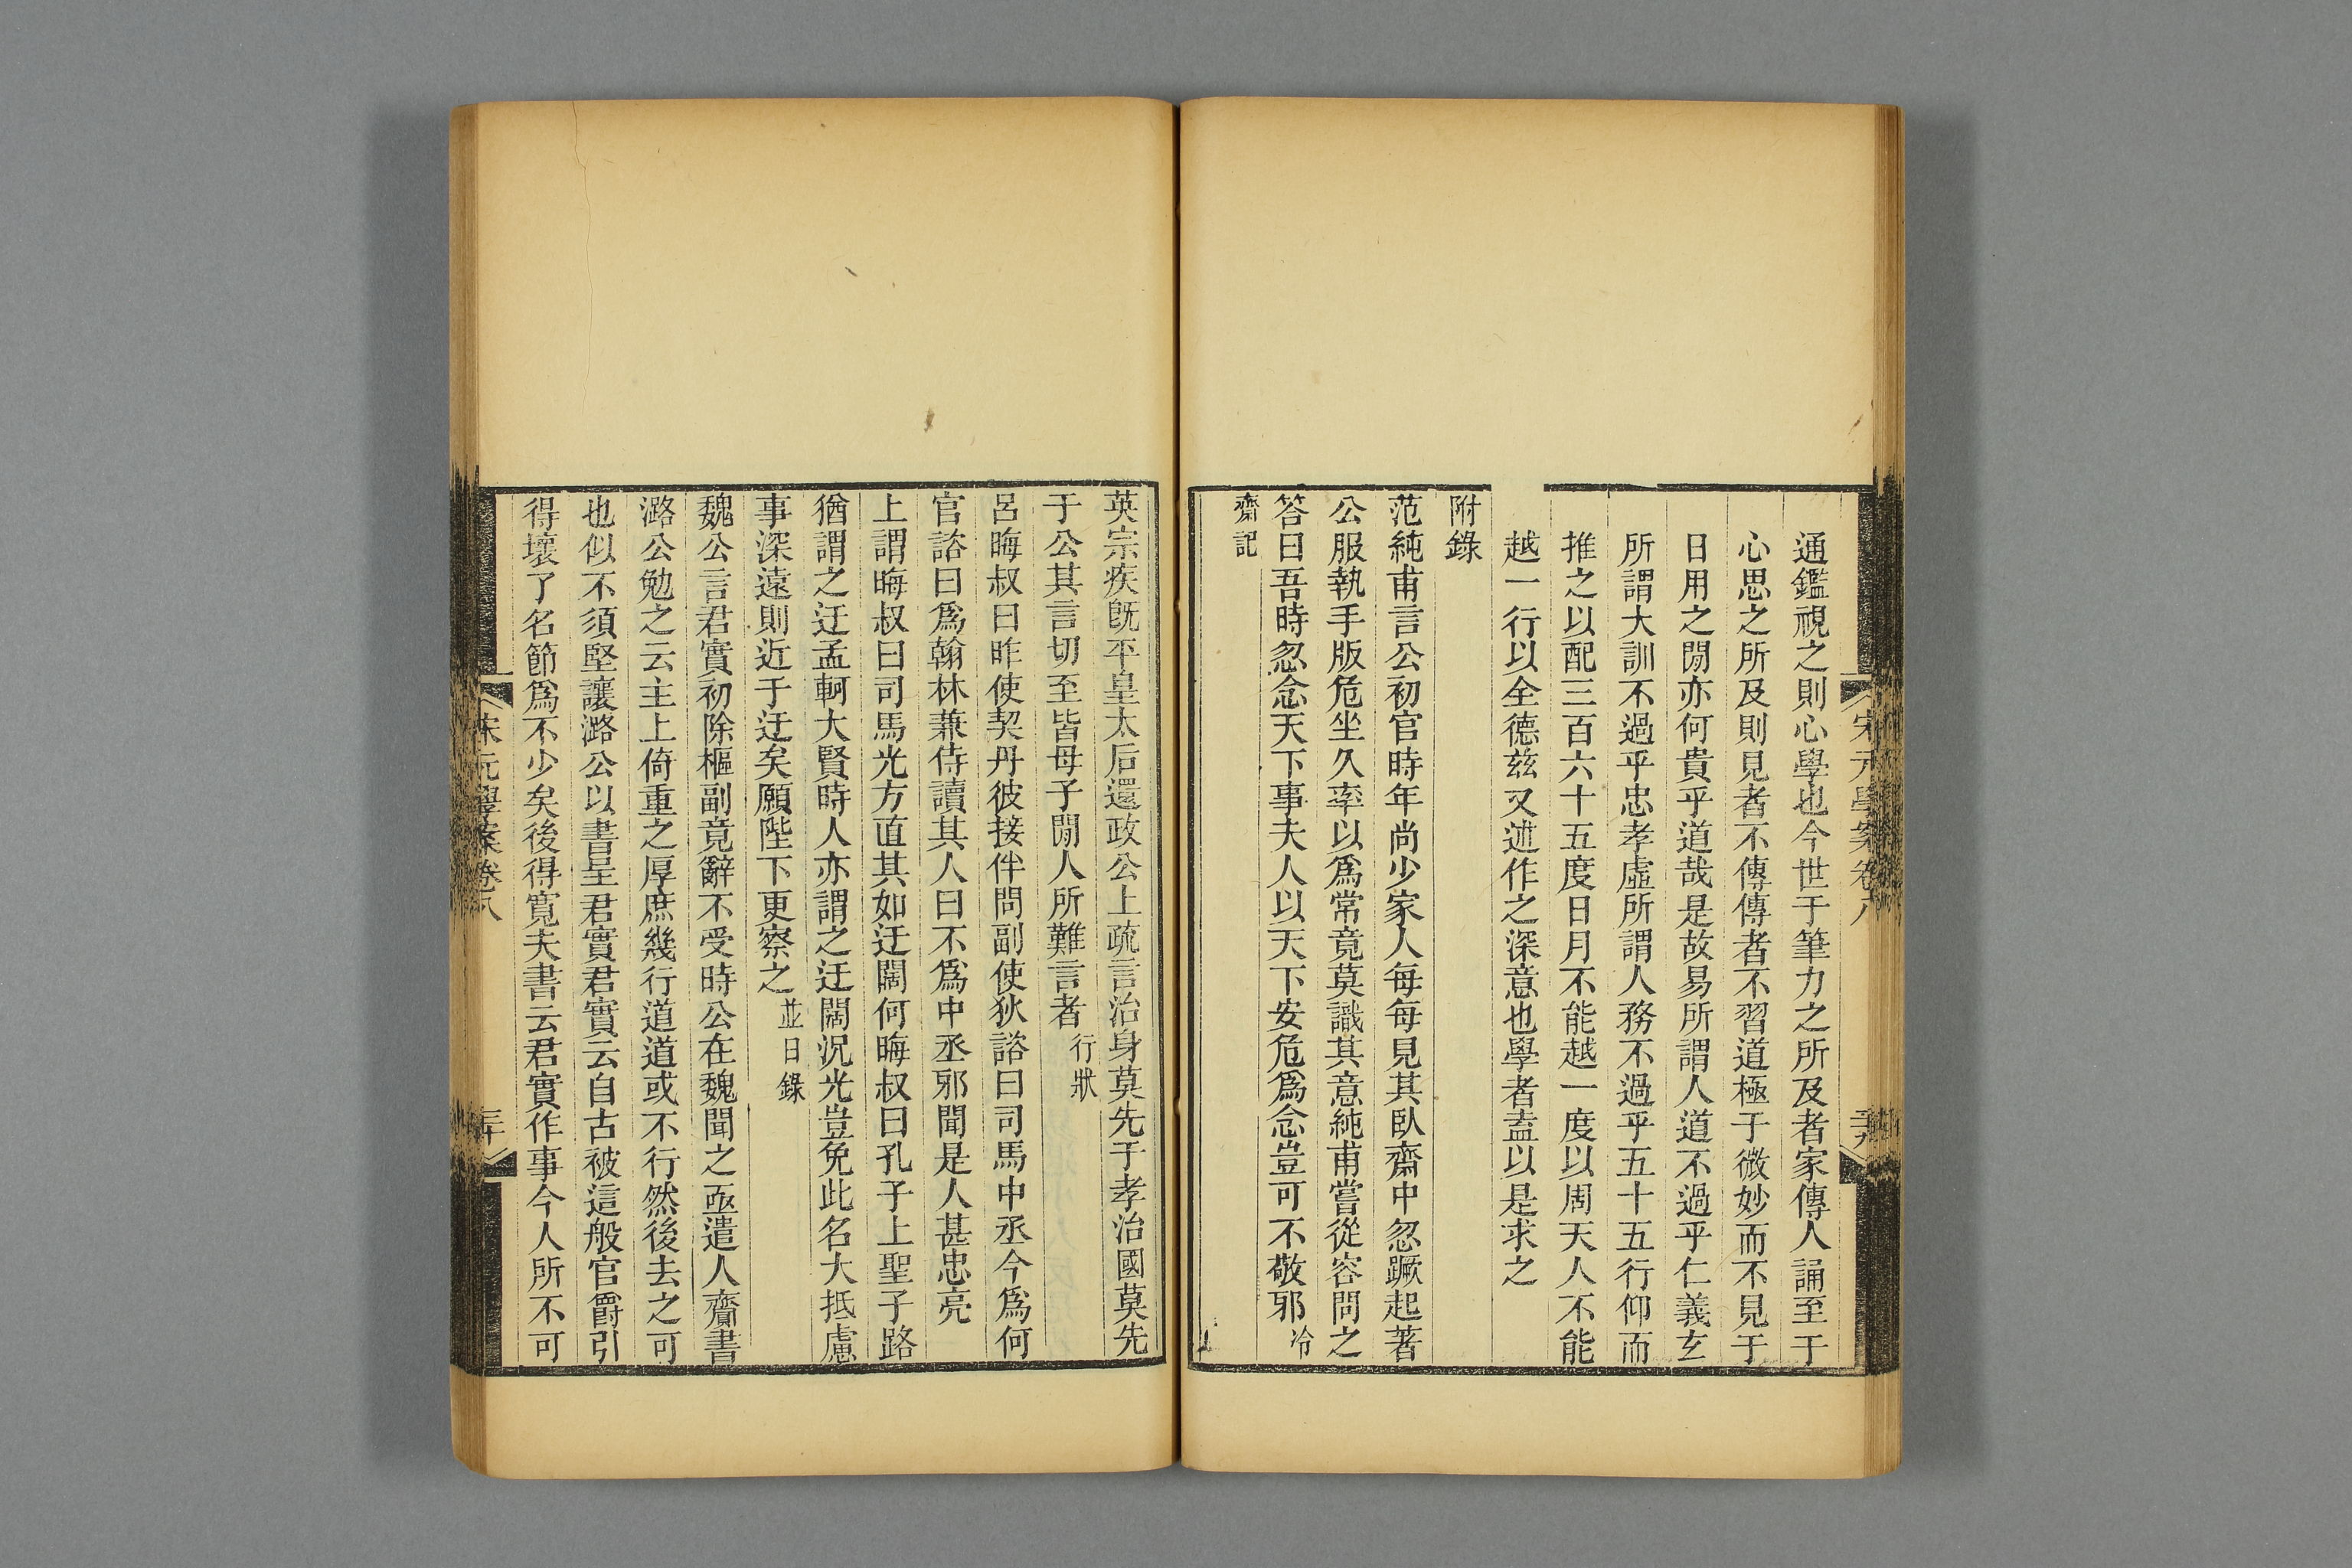 通鑑視之則心學也今世于筆力之所及者家傳人誦至于
心思之所及則見者不傳傳者不習道極于微妙而不見于
日用之閒亦何貴乎道哉是故易所謂人道不過乎仁義玄
所謂大訓不過乎忠孝虛所謂人務不過乎五十五行仰而
推之以配三百六十五度日月不能越一度以周天人不能
越一行以全德兹又述作之深意也學者盍以是求之
附錄
范純甫言公初官時年尚少家人每每見其臥齋中忽蹶起著
公服執手版危坐久率以爲常竟莫識其意純甫嘗從容問之
答曰吾時忽念天下事夫人以天下安危爲念豈可不敬邪冷
齋記
英宗疾旣平皇太后還政公上疏言治身莫先于孝治國莫先
于公其言切至皆母子閒人所難言者行狀
呂晦叔曰昨使契丹彼接伴問副使狄諮曰司馬中丞今爲何
官諮曰爲翰林兼侍讀其人曰不爲中丞邪聞是人甚忠亮
上謂晦叔曰司馬光方直其如迂闊何晦叔曰孔子上聖子路
猶謂之迂孟軻大賢時人亦謂之迂闊況光豈免此名大抵慮
事深遠則近于迂矣願陛下更察之並日錄
魏公言君實初除樞副竟辭不受時公在魏聞之亟遣人齎書
潞公勉之云主上倚重之厚庶幾行道道或不行然後去之可
也似不須堅讓潞公以書呈君實君實云自古被這般官爵引
得壞了名節爲不少矣後得寬夫書云君實作事今人所不可
宋元學案卷八